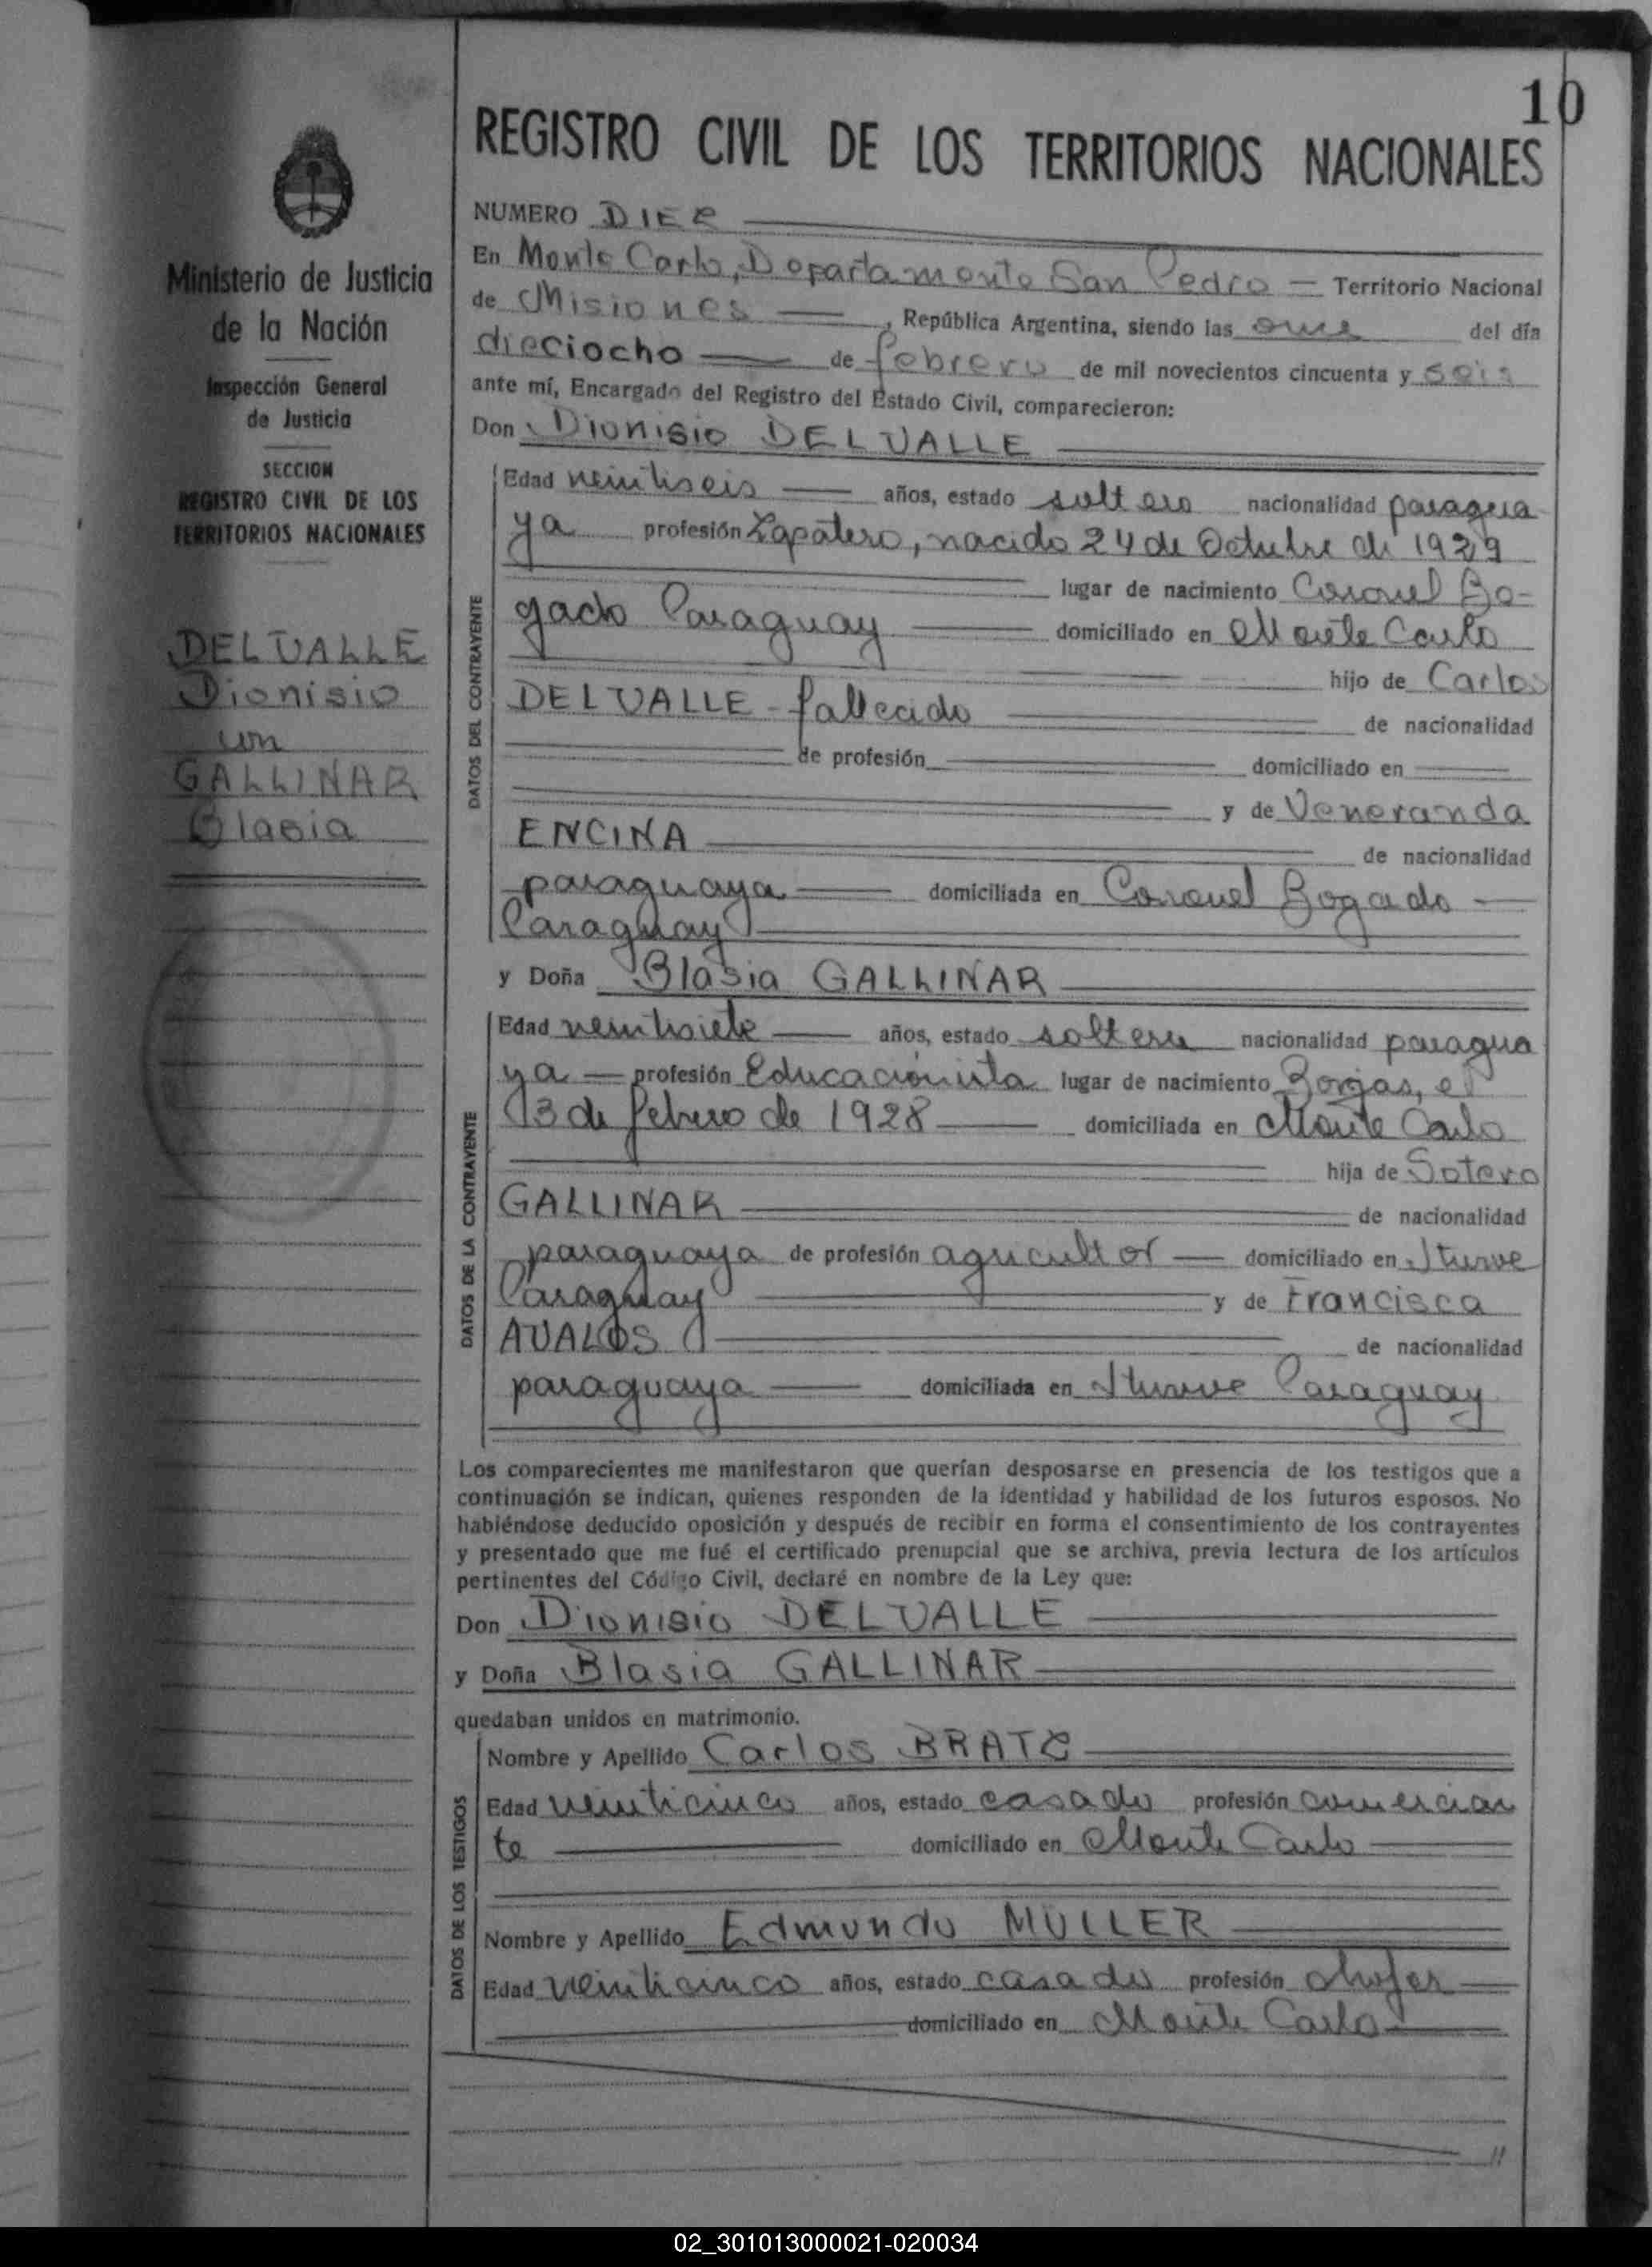 10
REGISTRO CIVIL DE LOS TERRITORIOS NACIONALES
Ministerio de Justicia
de la Nación
Inspección General
de Justicia
SECCION
REGISTRO CIVIL DE LOS
TERRITORIOS NACIONALES
DELVALLE
Dionisio
con
GALLINAR
Blasia
NUMERO DIEZ
En Monte Carlo, Departamento San Pedro — Territorio Nacional
de Misiones — , República Argentina, siendo las once del día
dieciocho — de febrero de mil novecientos cincuenta y seis
ante mí, Encargado del Registro del Estado Civil, comparecieron:
Don Dionisio DELVALLE
DATOS DEL CONTRAYENTE
Edad veintiseis — años, estado soltero nacionalidad paragua
ya profesión Zapatero, nacido 24 de Octubre de 1929
lugar de nacimiento Coronel Bo-
gado Paraguay — domiciliado en Monte Carlo
hijo de Carlos
DELVALLE - fallecido — de nacionalidad
de profesión — domiciliado en
y de Veneranda
ENCINA — de nacionalidad
paraguaya — domiciliada en Coronel Bogado —
Paraguay
y Doña Blasia GALLINAR
DATOS DE LA CONTRAYENTE
Edad veintisiete — años, estado soltera nacionalidad paragua
ya — profesión Educacionista lugar de nacimiento Borjas, el
13 de febrero de 1928 — domiciliada en Monte Carlo
hija de Sotero
GALLINAR — de nacionalidad
paraguaya de profesión agricultor — domiciliado en Iturve
Paraguay — y de Francisca
AVALOS — de nacionalidad
paraguaya — domiciliada en Iturve Paraguay
Los comparecientes me manifestaron que querían desposarse en presencia de los testigos que a
continuación se indican, quienes responden de la identidad y habilidad de los futuros esposos. No
habiéndose deducido oposición y después de recibir en forma el consentimiento de los contrayentes
y presentado que me fué el certificado prenupcial que se archiva, previa lectura de los artículos
pertinentes del Código Civil, declaré en nombre de la Ley que:
Don Dionisio DELVALLE
y Doña Blasia GALLINAR
quedaban unidos en matrimonio.
DATOS DE LOS TESTIGOS
Nombre y Apellido Carlos BRATZ
Edad veinticinco años, estado casado profesión comercian
te — domiciliado en Monte Carlo
Nombre y Apellido Edmundo MULLER
Edad veinticinco años, estado casado profesión chofer —
domiciliado en Monte Carlo
02_301013000021-020034